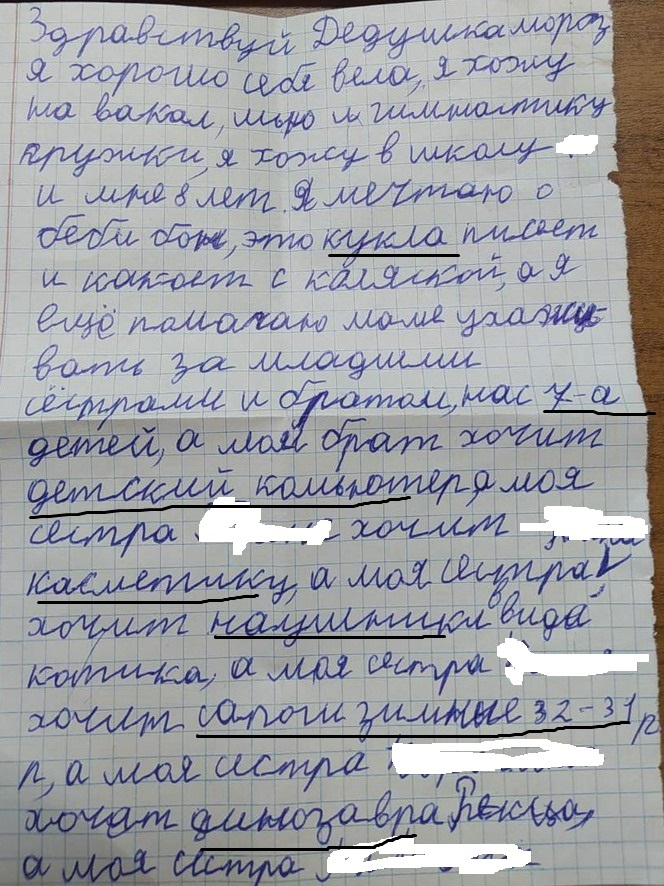 Здравствуй Дедушка мороз
я хорошо себя вела, я хожу
на вакал, и гимнастику
кружки, я хожу в школу
и мне 8 лет. Я мечтаю о
беби бон, это кукла писает
и какает с каляской, а я
ещё памагаю маме ухажу-
вать за младшими
сёстрами и братом, нас 7-а
детей, а мой брат хочит
детский компютер, а моя
сестра хочит
касметику, а моя сестра
хочит наушники вида
котика, а моя сестра
хочит сапоги зимные 32-31 р
р, а моя сестра
хочат динозавра Рекса,
а моя сестра